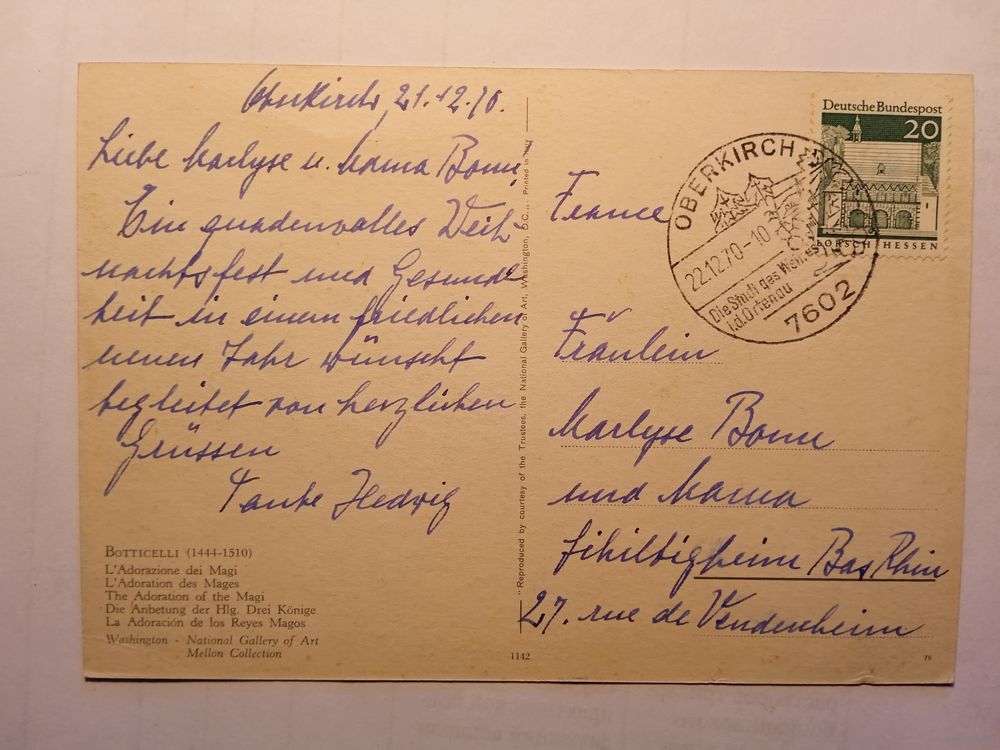 Oberkirch, 21.12.70.
Liebe Marlyse u. Mama Bonn!
Ein gnadenvolles Weih-
nachtsfest und Gesund-
heit in einem friedlichen
neuen Jahr wünscht
begleitet von herzlichen
Grüssen
Tante Hedwig
BOTTICELLI (1444-1510)
L'Adorazione dei Magi
L'Adoration des Mages
The Adoration of the Magi
Die Anbetung der Hlg. Drei Könige
La Adoración de los Reyes Magos
Washington - National Gallery of Art
Mellon Collection
"Reproduced by courtesy of the Trustees, the National Gallery of Art, Washington, D.C.„ Printed in
1142
Deutsche Bundespost
20
LORSCH HESSEN
OBERKIRCH
22.12.70-10
Die Stadt des Weines
i.d. Ortenau
7602
France
Fräulein
Marlyse Bonn
und Mama
Schiltigheim Bas Rhin
27. rue de Vendenheim